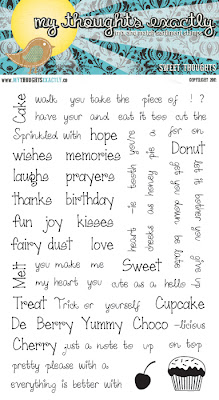 my thoughts exactly
SWEET THOUGHTS
WWW.MYTHOUGHTSEXACTLY.CA
COPYRIGHT 2011
Cake walk you take the piece of ! ?
have your and eat it too cut the
Sprinkled with hope a for on
wishes memories Donut
laughs prayers
thanks birthday
fun joy kisses
fairy dust love
you're
a
pie
heart -ie tooth
cheeks as honey
get you down be late
let it bother you
give up
Melt you make me Sweet
my heart you cute as a hello
Treat Trick or yourself Cupcake
De Berry Yummy Choco -licious
Cherry just a note to up on top
pretty please with a
everything is better with